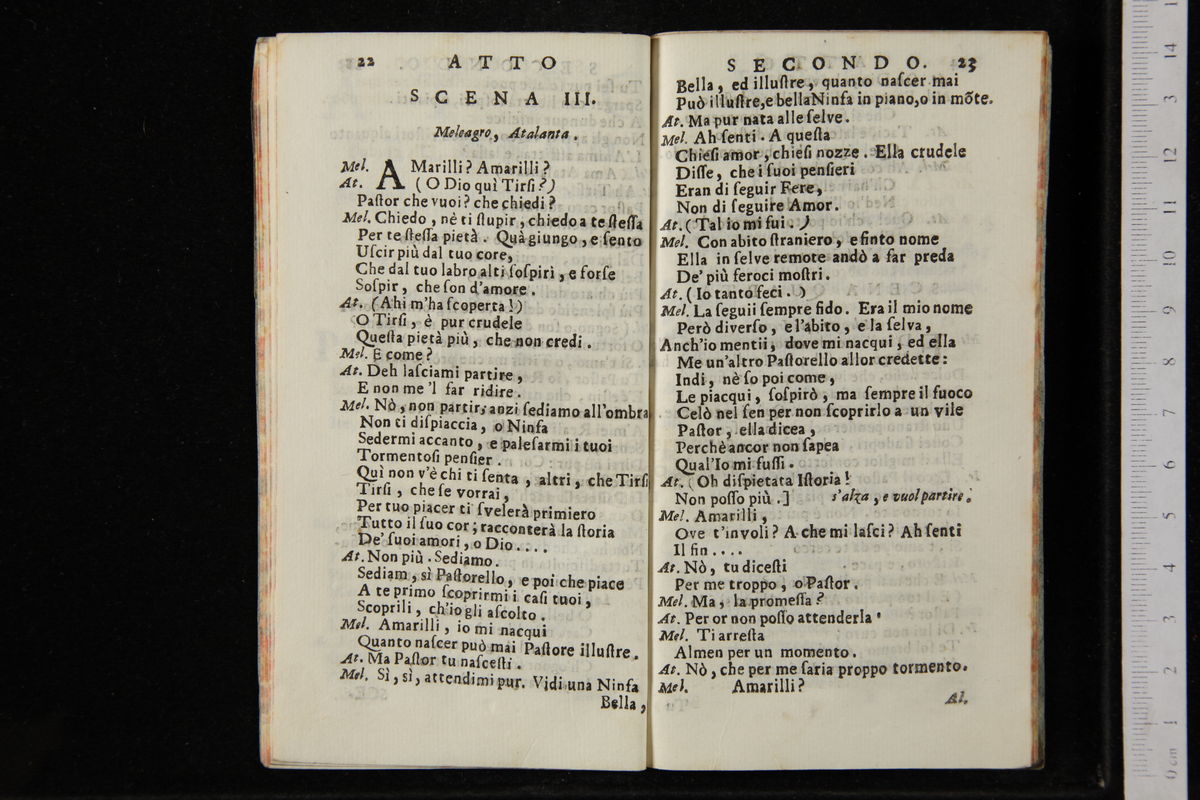 22 ATTO
SCENA III.
Meleagro, Atalanta.
Mel. AMarilli? Amarilli?
At. (O Dio quì Tirſi?)
Paſtor che vuoi? che chiedi?
Mel. Chiedo, nè ti ſtupir, chiedo a te ſteſſa
Per te ſteſſa pietà. Quà giungo, e ſento
Uſcir più dal tuo core,
Che dal tuo labro alti ſoſpiri, e forſe
Soſpir, che ſon d'amore.
At. (Ahi m'ha ſcoperta!)
O Tirſi, è pur crudele
Queſta pietà più, che non credi.
Mel. E come?
At. Deh laſciami partire,
E non me 'l far ridire.
Mel. Nò, non partir, anzi ſediamo all'ombra
Non ti diſpiaccia, o Ninfa
Sedermi accanto, e paleſarmi i tuoi
Tormentoſi penſier.
Quì non v'è chi ti ſenta, altri, che Tirſi
Tirſi, che ſe vorrai,
Per tuo piacer ti ſvelerà primiero
Tutto il ſuo cor; racconterà la ſtoria
De' ſuoi amori, o Dio....
At. Non più. Sediamo.
Sediam, sì Paſtorello, e poi che piace
A te primo ſcoprirmi i caſi tuoi,
Scoprili, ch'io gli aſcolto.
Mel. Amarilli, io mi nacqui
Quanto naſcer può mai Paſtore illuſtre.
At. Ma Paſtor tu naſceſti.
Mel. Sì, sì, attendimi pur. Vidi una Ninfa
Bella,
SECONDO. 23
Bella, ed illuſtre, quanto naſcer mai
Può illuſtre, e bella Ninfa in piano, o in mõte.
At. Ma pur nata alle ſelve.
Mel. Ah ſenti. A queſta
Chieſi amor, chieſi nozze. Ella crudele
Diſſe, che i ſuoi penſieri
Eran di ſeguir Fere,
Non di ſeguire Amor.
At. (Tal io mi fui.)
Mel. Con abito ſtraniero, e finto nome
Ella in ſelve remote andò a far preda
De' più feroci moſtri.
At. (Io tanto feci.)
Mel. La ſeguii ſempre fido. Era il mio nome
Però diverſo, e l'abito, e la ſelva,
Anch'io mentii, dove mi nacqui, ed ella
Me un'altro Paſtorello allor credette:
Indi, nè ſo poi come,
Le piacqui, ſoſpirò, ma ſempre il fuoco
Celò nel ſen per non ſcoprirlo a un vile
Paſtor, ella dicea,
Perchè ancor non ſapea
Qual'Io mi fuſſi.
At. (Oh diſpietata Iſtoria!
Non poſſo più.] s'alza, e vuol partire.
Mel. Amarilli,
Ove t'involi? A che mi laſci? Ah ſenti
Il fin....
At. Nò, tu diceſti
Per me troppo, o Paſtor.
Mel. Ma, la promeſſa?
At. Per or non poſſo attenderla.
Mel. Ti arreſta
Almen per un momento.
At. Nò, che per me ſaria proppo tormento.
Mel. Amarilli?
At.
14
13
12
11
10
9
8
7
6
5
4
3
2
1
0 cm